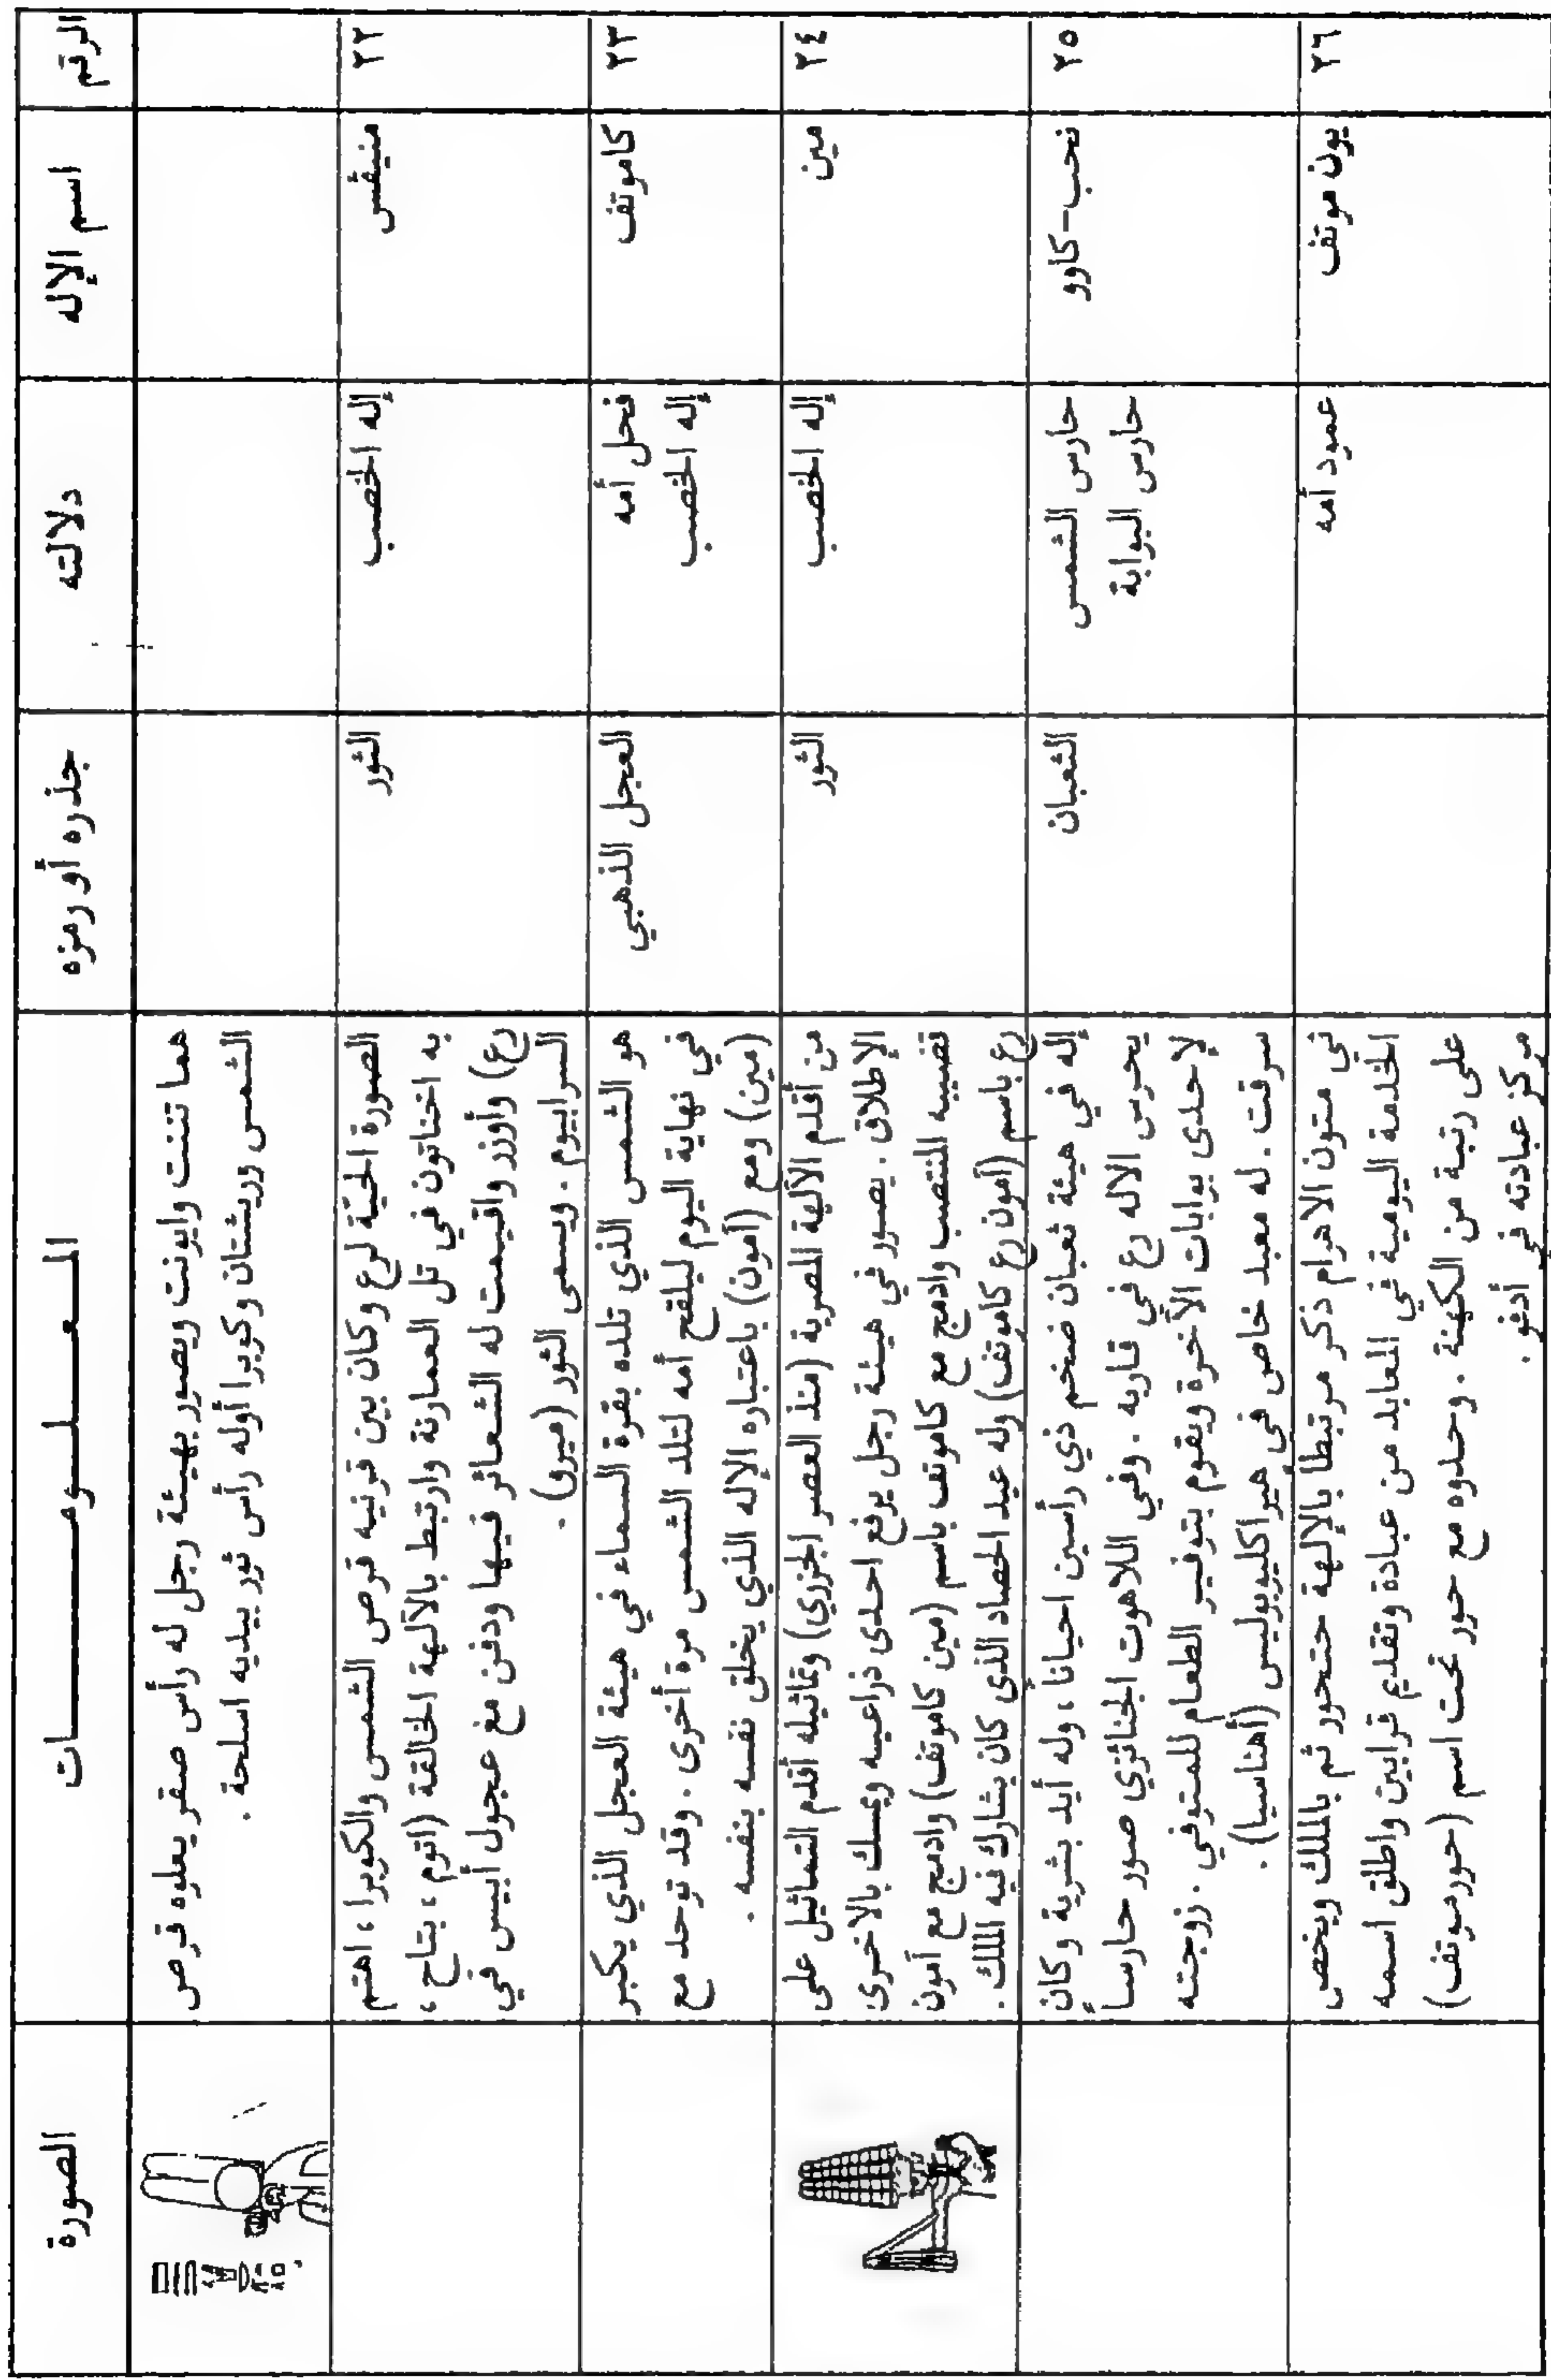 الرقم
اسم الإله
دلالته
جذره أو رمزه
المعلومات
الصورة
هما تننت وايونت ويصور بهيئة رجل له رأس صقر يعلوه قرص
الشمس وريشتان وكوبرا أوله رأس ثور بيديه اسلحة .
٢٢
منيفس
إله الخصب
الثور
الصورة الحيّة لرع وكان بين قرنيه قرص الشمس والكوبرا ، اهتم
به اختاتون في تل العمارنة وارتبط بالآلهة الخالقة (اتوم ، بتاح ،
رع) وأوزر واقيمت له الشعائر فيها ودفن مع عجول أبيس في
السرابيوم . ويسمى الثور (ميرو) .
٢٣
كاموتف
فحل أمه
إله الخصب
العجل الذهبي
هو الشمس الذي تلده بقرة السماء في هيئة العجل الذي يكبر
في نهاية اليوم ليلقح أمه لتلد الشمس مرة أخرى . وقد توحد مع
(مين) ومع (آمون) باعتباره الإله الذي يخلق نفسه بنفسه .
٢٤
مين
إله الخصب
الثور
من أقدم الآلهة المصرية (منذ العصر الجرزي) وتماثيله أقدم التماثيل على
الإطلاق . يصور في هيئة رجل يرفع احدى ذراعيه ويمسك بالأخرى
قضيبه المنتصب وادمج مع كاموتف باسم (مين كاموتف) وادمج مع آمون
رع باسم (آمون رع كاموتف) وله عيد الحصاد الذي كان يشارك فيه الملك .
٢٥
نحب-كاوو
حارس الشمس
حارس البوابة
الثعبان
إله في هيئة ثعبان ضخم ذي رأسين احياناً ، وله أيد بشرية وكان
يحرس الاله رع في قاربه . وفي اللاهوت الجنائزي صور حارساً
لإحدى بوابات الآخرة ويقوم بتوفير الطعام للمتوفي . زوجته
سرقت . له معبد خاص في هيراكليوبوليس (أهناسيا) .
٢٦
يون موتف
عمود أمه
في متون الاهرام ذكر مرتبطا بالإلهة حتحور ثم بالملك ويخص
الخدمة اليومية في المعابد من عبادة وتقديم قرابين واطلق اسمه
على رتبة من الكهنة . وحدوه مع حور تحت اسم (حورموتف)
مركز عبادته في أدفو .